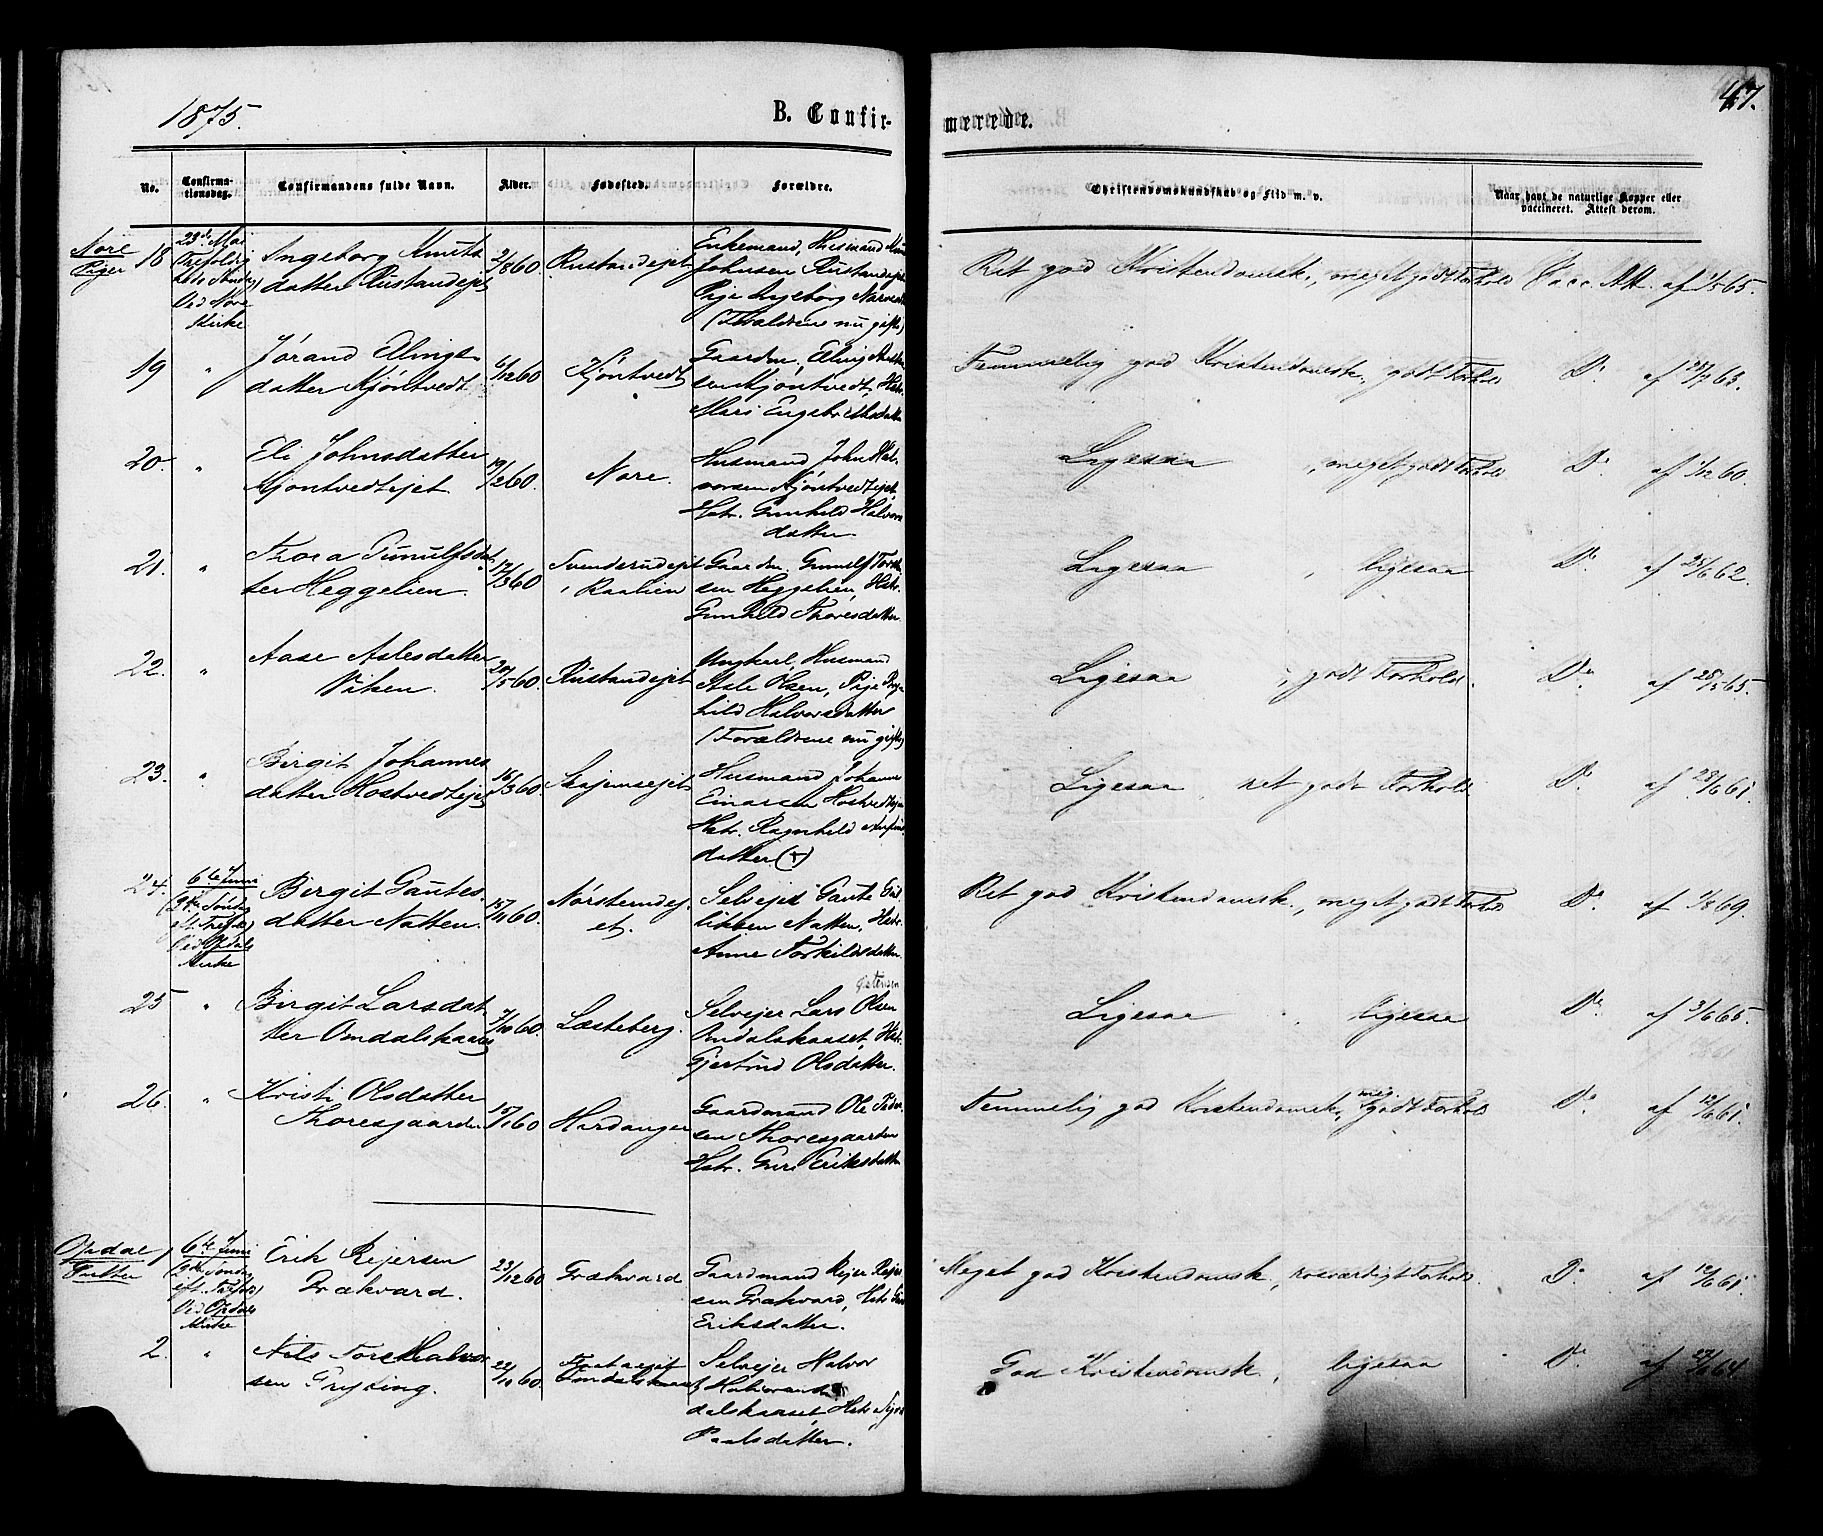 1875.
B. Confir-
merede.
47.
No.
Confirma-
tionsdag.
Confirmandens fulde Navn.
Alder.
Fødested.
Forældre.
Christendomskundskab og Flid m. v.
Naar havt de naturlige Kopper eller
vaccineret. Attest derom.
Nore
Piger
18
23de Mai
Ved Nore
Kirke
Ingeborg Knuts
datter Rustandejet
2/8 60
Rustandejet
Enkemand, Husmand
Johnsen Rustandejet
Pige Ingeborg
(Forældrene nu gifte)
Ret god Kristendomsk., meget godt Forhold
Vacc. Att. af 1/5 65.
19
"
Jørand Elings-
datter Kjøntvedt
6/12 60
Kjøntvedt
Gaardm. Eling
sen Kjøntvedt, Hstr.
Mari Engebrethsdatter
Temmelig god Kristendomsk., godt Forhold
Do
20.
"
Eli Johnsdatter
Kjøntvedtejet
19/2 60.
Nore.
Husmand John Hal-
vorsen Kjøntvedtejet
Hstr. Gunhild Halvors
datter
Ligesaa, meget godt Forhold
Do af 1/12 60.
21.
"
Thora Gunulfsdat
ter Heggelien.
17/3 60
Svenderudejet
i Raalien
Gaardm. Gunulf
sen Heggelien, Hstr.
Gunhild Thoresdatter
Ligesaa, ligesaa
Do af 25/6 62.
22.
"
Aase Aslesdatter
Viken.
20/5 60.
Rustandejet
Ungkarl, Husmand
Asle Olsen, Pige
hild Halvorsdatter
(Forældrene nu gifte)
Ligesaa, godt Forhold.
Do af 28/5 65.
23.
"
Birgit Johannes
datter Hostvedtejet
16/3 60.
Skjønsejet
Husmand Johannes
Einarsen Hostvedtejet
Hstr. Ragnhild
datter (+)
Ligesaa, ret godt Forhold
Do af 23/6 61.
24.
6te Juni
Ved Opdals
Kirke
Birgit Gautes-
datter Natten.
17/11 60.
Nørsteindej-
et.
Selvejer Gaute
Natten, Hstr.
Anne Torkildsdatter
Ret god Kristendomsk., meget godt Forhold
Do af 1/8 69.
25
"
Birgit Larsdat
ter Omdalskaaset
7/10 60.
Læsteberg.
Østensen
Selvejer Lars Olsen
Omdalskaaset, Hstr.
Gjertrud Olsdatter.
Ligesaa, ligesaa
Do af 3/6 65.
26.
"
Kristi Olsdatter
Thoresgaarden
17/1 60
Hardanger
Gaardmand Ole
sen Thoresgaarden
Hstr. Guri Eriksdatter
Temmelig god Kristendomsk., meg. godt Forhold
Do af 12/6 61.
Opdal
Gutter
1
6te Juni
Ved Opdals
Kirke
Erik Reiersen
Frækvard.
23/12 60
Frækvard
Gaardmand Reier Reier
sen Frækvard, Hstr.
Eriksdatter.
Meget god Kristendomsk., rosværdigt Forhold.
Do af 12/6 61.
2.
"
Nils Tore Halvor
sen Gryting.
22/10 60.
Omdalskaaset
Selvejer Halvor
dalskaaset, Hstr.
Paalsdatter.
God Kristendomsk., ligesaa
Do